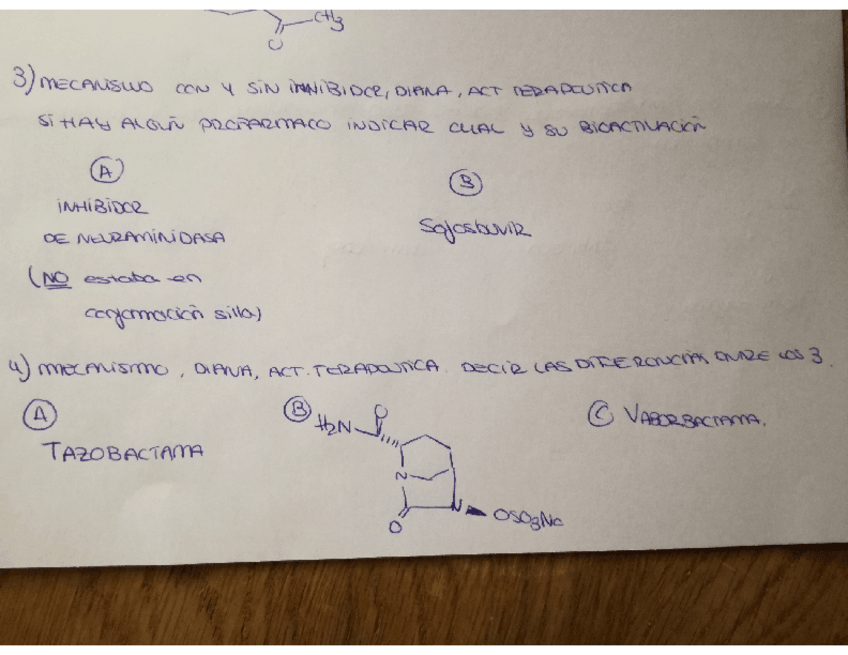 CH3
O
3) MECANISMO CON Y SIN INHIBIDOR, DIANA, ACT TERAPEUTICA
SI HAY ALGÚN PROFARMACO INDICAR CUAL Y SU BIOACTIVACIÓN
A
INHIBIDOR
DE NEURAMINIDASA
(NO estaba en
conformación silla)
B
Sofosbuvir
4) MECANISMO, DIANA, ACT. TERAPEUTICA. DECIR LAS DIFERENCIAS ENTRE LOS 3.
A
TAZOBACTAMA
B
H2N
O
N
N
O
OSO3Na
C VABORBACTAMA.